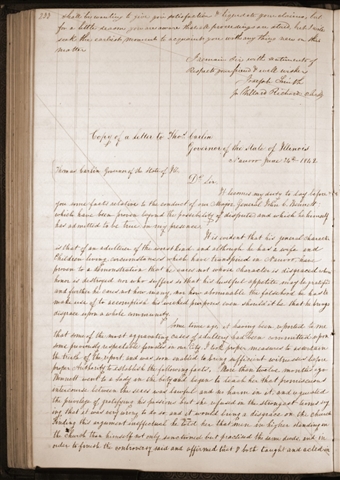 233
shall be wanting to give you satisfaction & liquidate your claims, but
for a little season you are aware that all proceedings are stted, but I will
seek the earliest moment to acquaint you with any thing new in this
matter
I remain Sir with sentiments of
Respect your friend & well wisher
Joseph Smith
Willard Richards
Copy of a letter to Thos. Carlin
Governor of the State of Illinois
Nauvoo June 24th 1842.
Thomas Carlin Governor of the State of Ill.
Dr Sir
It becomes my duty to lay before
you some facts relative to the conduct of our Major General John C. Bennett
which have been proven beyond the possibility of dispute and which he himself
has admitted to be true in my presence
It is evident that his general character
is that of an adulterer of the worst kind and although he has a wife and
Children living circumstances which have transpired in Nauvoo have
proven to a demonstration that he cares not whose character is disgraced whose
honor is destroyed nor who suffers so that his lustful appetite may be gratified
and further he cares not how many nor how abominable the falsehoods he has to
make use of to accomplish his wicked purposes even should it be that he brings
disgrace upon a whole community
Some time ago it having been reported to me
that some of the most aggravating cases of adultery had been committed upon
some previously respectable females in our City I took proper measures to ascertain
the truth of the report and was soon enabled to bring sufficient witnesses before
proper Authority to establish the following facts. More than twelve months ago
Bennett went to a lady in the City and began to teach her that promiscuous
intercourse between the sexes was lawful and no harm in it, and requested
the privilege of gratifying his passions but she refused in the strongest terms say
ing that it was very wrong to do so and it would bring a disgrace on the church
Finding this argument ineffectual he told her that men in higher standing in
the church than himself not only sanctioned but practised the same deeds and in
order to finish the controversy said and affirmed that I both taught and acted in